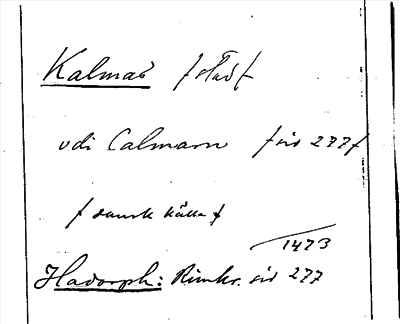 Kalmar /stad/
udi Calmarn /sid 277/
/dansk källa/
1473
Hadorph: Rimkr. sid 277